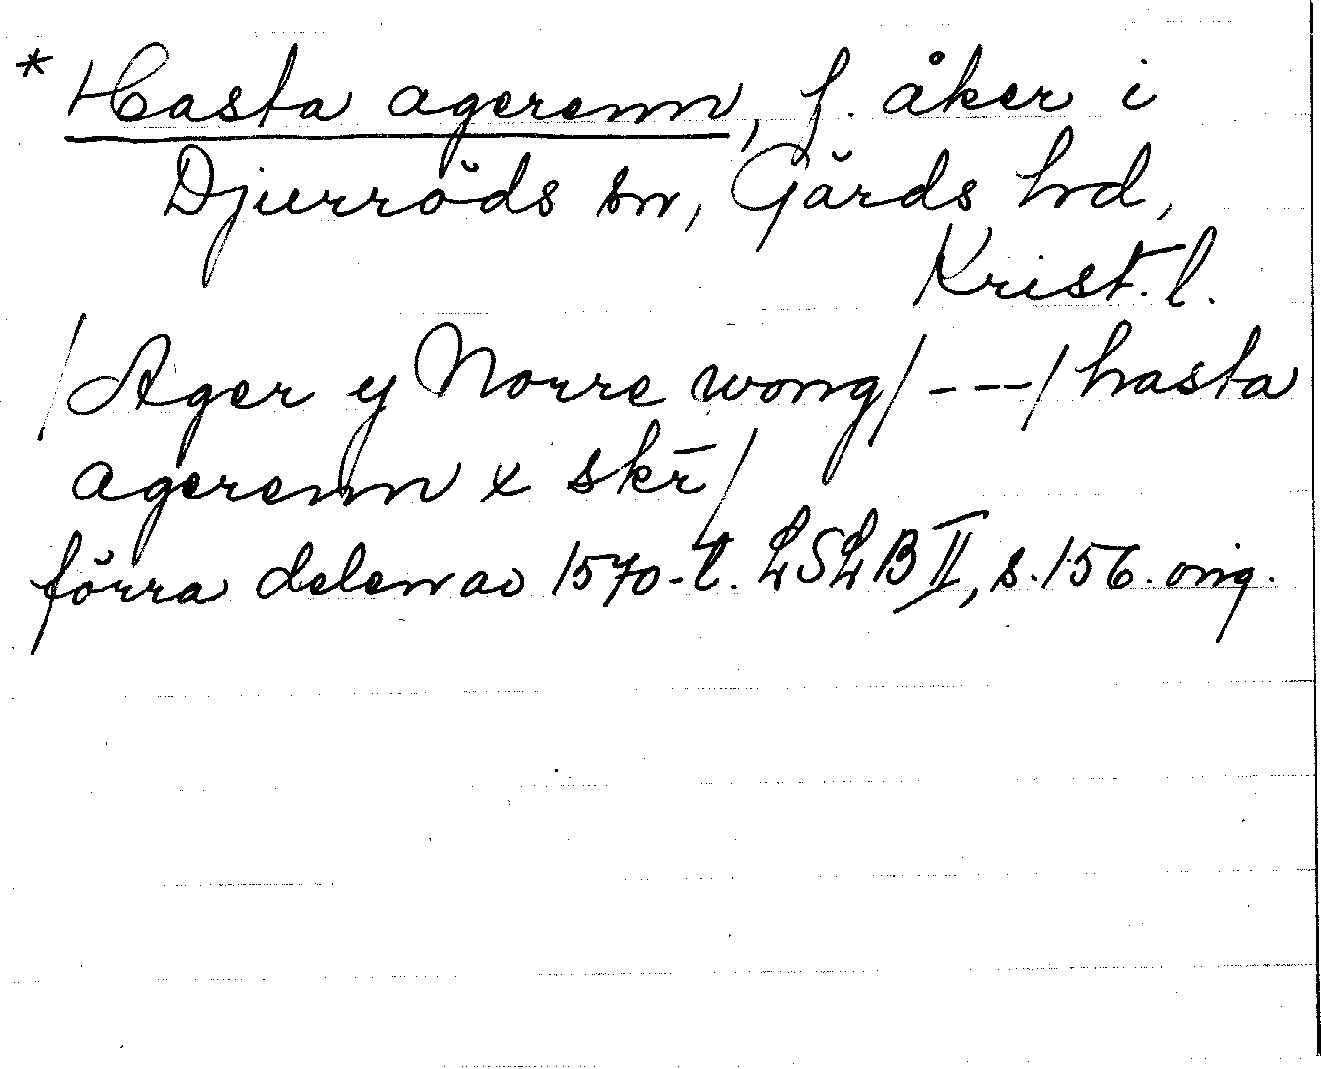 * Hasta agerenn, f. åker i
Djurröds sn, Gärds hd,
Krist. l.
/Ager y Norre wong/ --- / hasta
agerenn x skr̄/
förra delen av 1570-t. LSLB II, s. 156. orig.